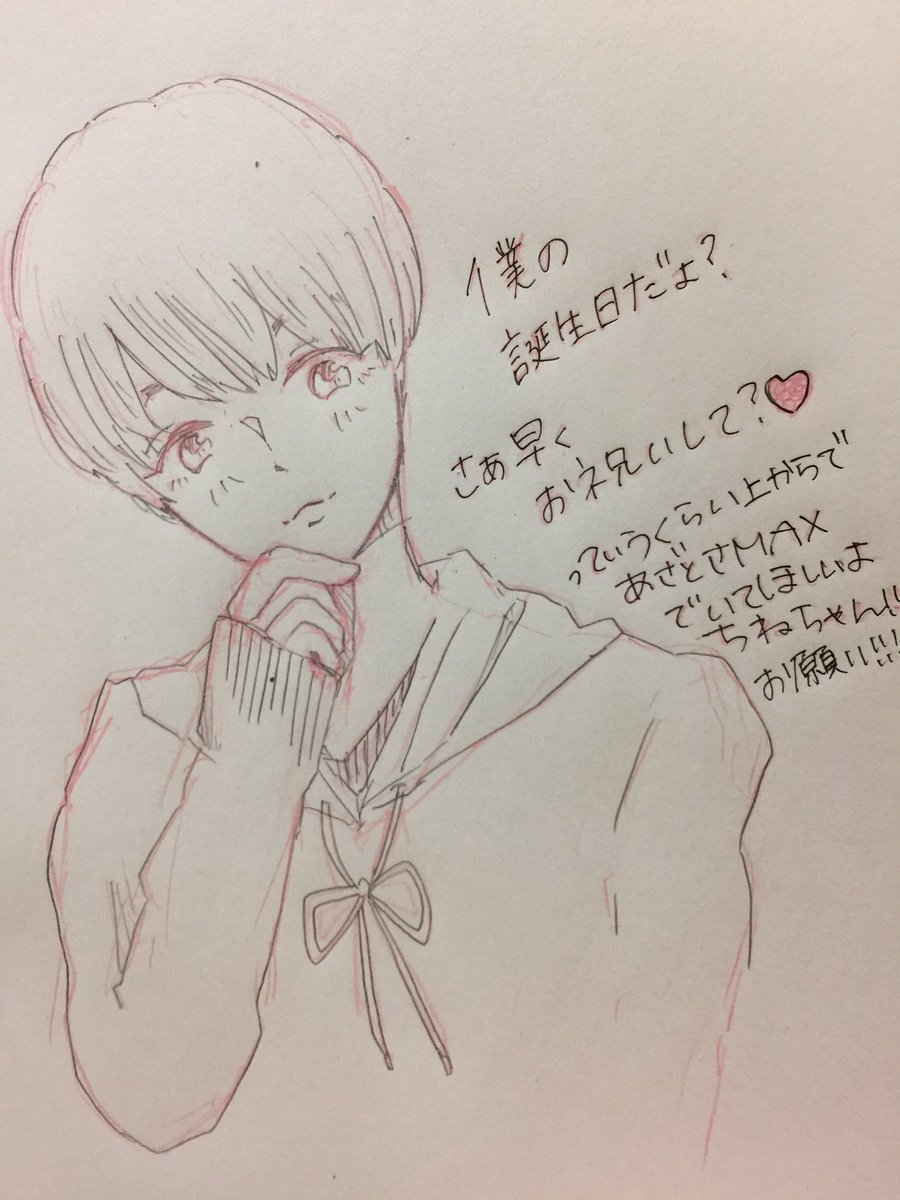 僕の
誕生日だよ?
さぁ早く
お祝いして?♥
っていうくらい上からで
あざとさMAX
でいてほしいよ
ちねちゃん!!
お願い!!!